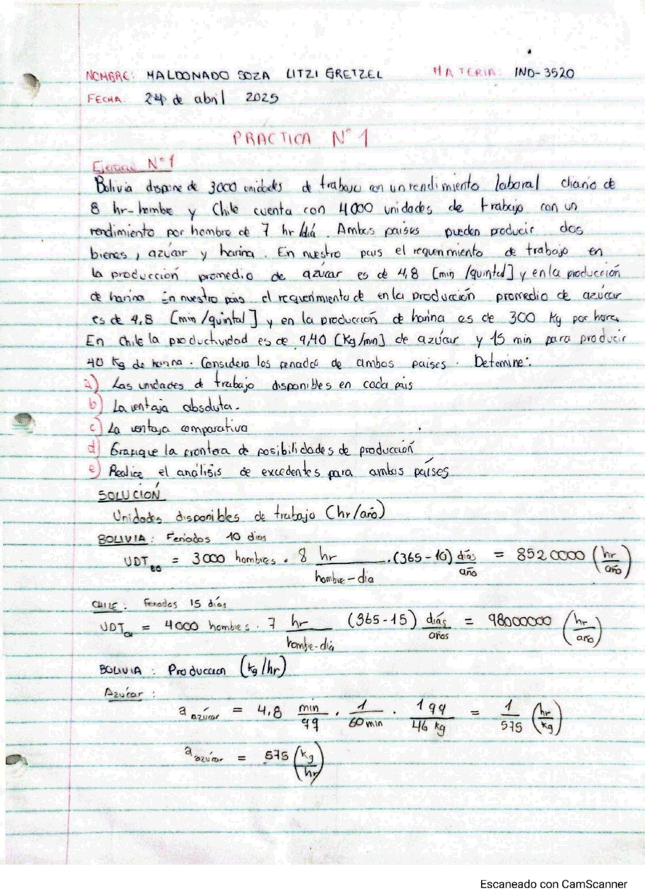 NOMBRE: MALDONADO SOZA LITZI GRETZEL MATERIA: IND-3520
FECHA: 24 de abril 2025
PRACTICA N° 1
Ejercicio N° 1
Bolivia dispone de 3000 unidades de trabajo con un rendimiento laboral diario de
8 hr-hombe y Chile cuenta con 4000 unidades de trabajo con un
rendimiento por hombre de 7 hr/día. Ambos paises pueden producir dos
bienes, azúcar y harina. En nuestro pais el requerimiento de trabajo en
la producción promedio de azúcar es de 4,8 [min/quintal] y en la producción
de harina En nuestro pais el requerimiento de en la producción promedio de azúcar
es de 4,8 [min/quintal] y en la producción de harina es de 300 Kg por hora.
En chile la productividad es de 9,40 [Kg/min] de azúcar y 15 min para producir
40 Kg de harina. Considera los feriados de ambos paises. Determine:
a) Las unidades de trabajo disponibles en cada país
b) La ventaja absoluta.
c) La ventaja comparativa
d) Grafique la frontera de posibilidades de producción
e) Realice el análisis de excedentes para ambos países
SOLUCIÓN
Unidades disponibles de trabajo (hr/año)
BOLIVIA: Feriados 10 dias
UDT_BO = 3000 hombres . 8 hr/hombre-dia . (365-10) días/año = 8520000 (hr/año)
CHILE: Feriados 15 días
UDT_CH = 4000 hombres . 7 hr/hombe-día (365-15) días/años = 98000000 (hr/año)
BOLIVIA: Produccion (kg/hr)
Azúcar:
a azúcar = 4,8 min/qq . 1/60 min . 1 qq/46 kg = 1/575 (hr/kg)
a azúcar = 575 (kg/hr)
Escaneado con CamScanner